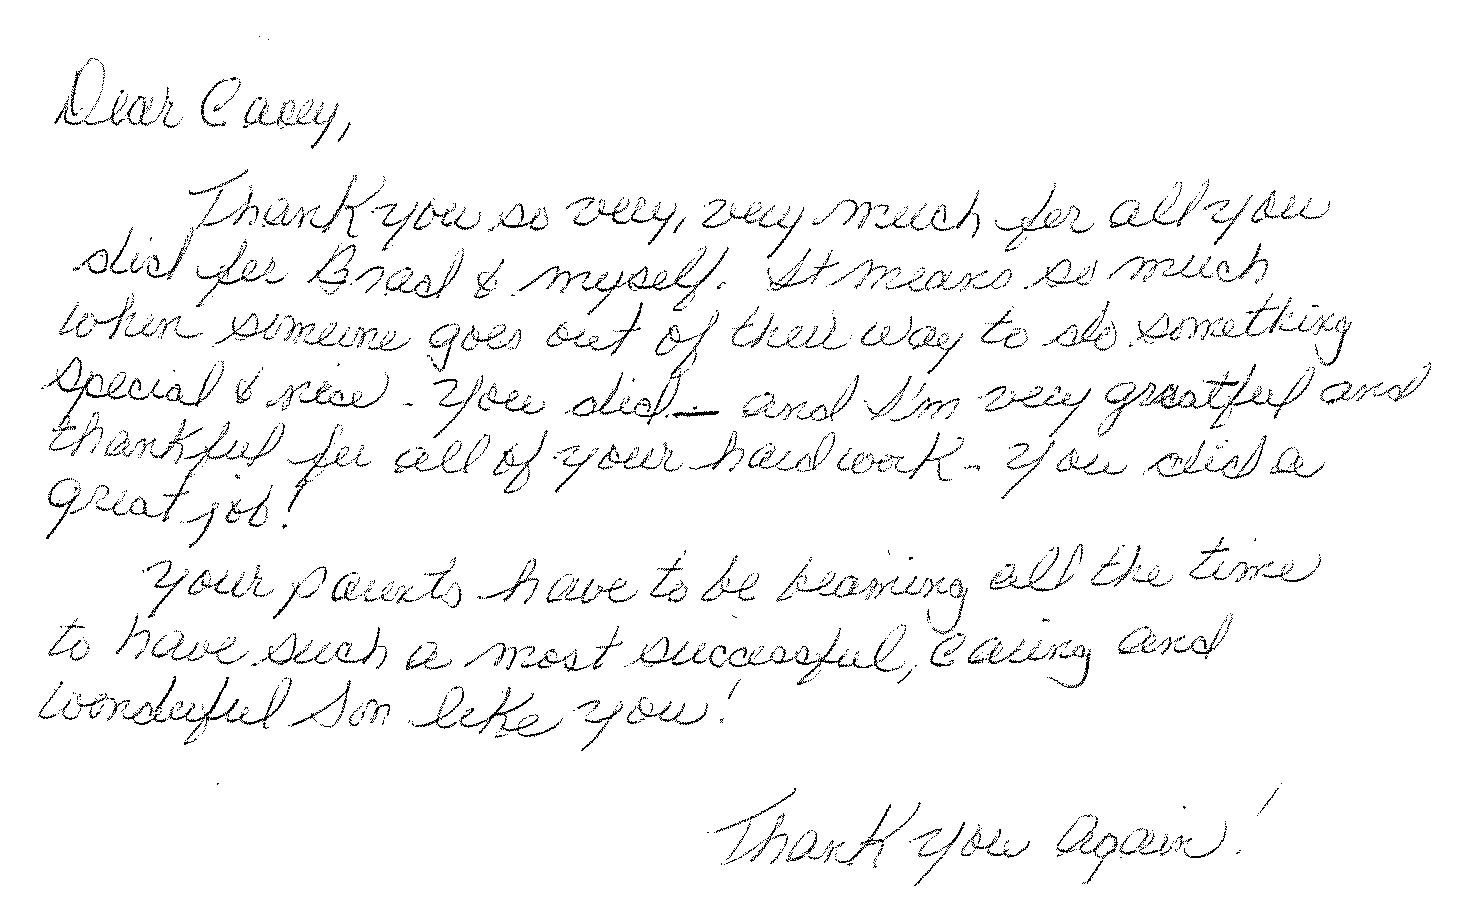 Dear Casey,
Thank you so very, very much for all you
did for Brad & myself. It means so much
when someone goes out of their way to do something
special & nice - You did - and I'm very greatful and
thankful for all of your hard work - You did a
great job!
Your parents have to be beaming all the time
to have such a most successful, caring and
wonderful son like you!
Thank you again!